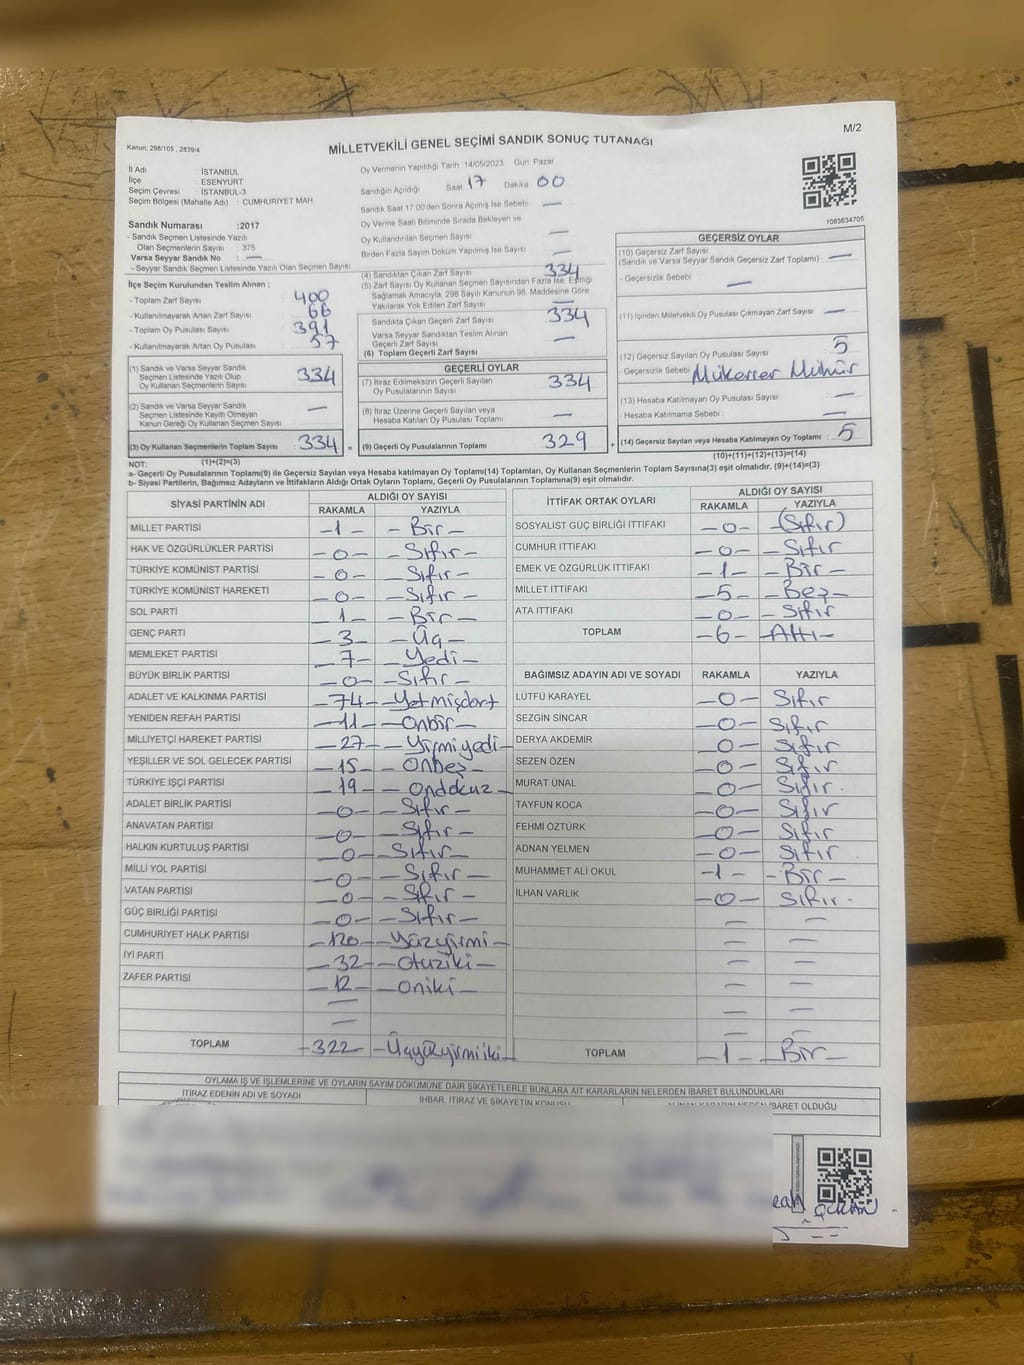 M/2
Kanun: 298/105 , 2839/4
MİLLETVEKİLİ GENEL SEÇİMİ SANDIK SONUÇ TUTANAĞI
İl Adı : İSTANBUL
İlçe : ESENYURT
Seçim Çevresi : İSTANBUL-3
Seçim Bölgesi (Mahalle Adı) : CUMHURİYET MAH
Sandık Numarası :2017
- Sandık Seçmen Listesinde Yazılı
Olan Seçmenlerin Sayısı : 375
Varsa Seyyar Sandık No : —
- Seyyar Sandık Seçmen Listesinde Yazılı Olan Seçmen Sayısı
Oy Vermenin Yapıldığı Tarih 14/05/2023 Gün: Pazar
Sandığın Açıldığı Saat 17 Dakika 00
Sandık Saat 17:00'den Sonra Açılmış İse Sebebi —
Oy Verme Saati Bitiminde Sırada Bekleyen ve
Oy Kullandırılan Seçmen Sayısı —
Birden Fazla Sayım Döküm Yapılmış İse Sayısı —
1083634705
İlçe Seçim Kurulundan Teslim Alınan ;
- Toplam Zarf Sayısı : 400
- Kullanılmayarak Artan Zarf Sayısı : 66
- Toplam Oy Pusulası Sayısı : 391
- Kullanılmayarak Artan Oy Pusulası : 57
(1) Sandık ve Varsa Seyyar Sandık
Seçmen Listesinde Yazılı Olup
Oy Kullanan Seçmenlerin Sayısı 334
(2) Sandık ve Varsa Seyyar Sandık
Seçmen Listesinde Kayıtlı Olmayan
Kanun Gereği Oy Kullanan Seçmen Sayısı —
(3) Oy Kullanan Seçmenlerin Toplam Sayısı 334 =
(1)+(2)=(3)
(4) Sandıktan Çıkan Zarf Sayısı 334
(5) Zarf Sayısı Oy Kullanan Seçmen Sayısından Fazla İse, Eşitliği
Sağlamak Amacıyla, 298 Sayılı Kanunun 98. Maddesine Göre
Yakılarak Yok Edilen Zarf Sayısı —
Sandıkta Çıkan Geçerli Zarf Sayısı 334
Varsa Seyyar Sandıktan Teslim Alınan
Geçerli Zarf Sayısı —
(6) Toplam Geçerli Zarf Sayısı
GEÇERLİ OYLAR
(7) İtiraz Edilmeksizin Geçerli Sayılan
Oy Pusulalarının Sayısı 334
(8) İtiraz Üzerine Geçerli Sayılan veya
Hesaba Katılan Oy Pusulası Toplamı —
(9) Geçerli Oy Pusulalarının Toplamı 329 +
GEÇERSİZ OYLAR
(10) Geçersiz Zarf Sayısı
(Sandık ve Varsa Seyyar Sandık Geçersiz Zarf Toplamı) : —
- Geçersizlik Sebebi : —
(11) İçinden Milletvekili Oy Pusulası Çıkmayan Zarf Sayısı : —
(12) Geçersiz Sayılan Oy Pusulası Sayısı : 5
- Geçersizlik Sebebi : Mükerrer Mühür
(13) Hesaba Katılmayan Oy Pusulası Sayısı : —
- Hesaba Katılmama Sebebi : —
(14) Geçersiz Sayılan veya Hesaba Katılmayan Oy Toplamı : 5
(10)+(11)+(12)+(13)=(14)
NOT:
a- Geçerli Oy Pusulalarının Toplamı(9) ile Geçersiz Sayılan veya Hesaba katılmayan Oy Toplamı(14) Toplamları, Oy Kullanan Seçmenlerin Toplam Sayısına(3) eşit olmalıdır. (9)+(14)=(3)
b- Siyasi Partilerin, Bağımsız Adayların ve İttifakların Aldığı Ortak Oyların Toplamı, Geçerli Oy Pusulalarının Toplamına(9) eşit olmalıdır.
SİYASİ PARTİNİN ADI ALDIĞI OY SAYISI
RAKAMLA YAZIYLA
MİLLET PARTİSİ —1— —Bir—
HAK VE ÖZGÜRLÜKLER PARTİSİ —0— —Sıfır—
TÜRKİYE KOMÜNİST PARTİSİ —0— —Sıfır—
TÜRKİYE KOMÜNİST HAREKETİ —0— —Sıfır—
SOL PARTİ —1— —Bir—
GENÇ PARTİ —3— —Üç—
MEMLEKET PARTİSİ —7— —Yedi—
BÜYÜK BİRLİK PARTİSİ —0— —Sıfır—
ADALET VE KALKINMA PARTİSİ —74— —Yetmişdört
YENİDEN REFAH PARTİSİ —11— —Onbir—
MİLLİYETÇİ HAREKET PARTİSİ —27— —Yirmiyedi—
YEŞİLLER VE SOL GELECEK PARTİSİ —15— —Onbeş—
TÜRKİYE İŞÇİ PARTİSİ —19— —Ondokuz—
ADALET BİRLİK PARTİSİ —0— —Sıfır—
ANAVATAN PARTİSİ —0— —Sıfır—
HALKIN KURTULUŞ PARTİSİ —0— —Sıfır—
MİLLİ YOL PARTİSİ —0— —Sıfır—
VATAN PARTİSİ —0— —Sıfır—
GÜÇ BİRLİĞİ PARTİSİ —0— —Sıfır—
CUMHURİYET HALK PARTİSİ —120— —Yüzyirmi—
İYİ PARTİ —32— —Otuziki—
ZAFER PARTİSİ —12— —Oniki—
TOPLAM —322— —Üçyüzyirmiiki—
İTTİFAK ORTAK OYLARI ALDIĞI OY SAYISI
RAKAMLA YAZIYLA
SOSYALİST GÜÇ BİRLİĞİ İTTİFAKI —0— —(Sıfır)
CUMHUR İTTİFAKI —0— —Sıfır
EMEK VE ÖZGÜRLÜK İTTİFAKI —1— —Bir—
MİLLET İTTİFAKI —5— —Beş—
ATA İTTİFAKI —0— —Sıfır
TOPLAM —6— —Altı—
BAĞIMSIZ ADAYIN ADI VE SOYADI RAKAMLA YAZIYLA
LÜTFÜ KARAYEL —0— Sıfır
SEZGİN SİNCAR —0— Sıfır
DERYA AKDEMİR —0— Sıfır
SEZEN ÖZEN —0— Sıfır
MURAT ÜNAL —0— Sıfır.
TAYFUN KOCA —0— Sıfır
FEHMİ ÖZTÜRK —0— Sıfır
ADNAN YELMEN —0— Sıfır.
MUHAMMET ALİ OKUL —1— —Bir—
İLHAN VARLIK —0— Sıfır.
TOPLAM —1— —Bir—
OYLAMA İŞ VE İŞLEMLERİNE VE OYLARIN SAYIM DÖKÜMÜNE DAİR ŞİKAYETLERLE BUNLARA AİT KARARLARIN NELERDEN İBARET BULUNDUKLARI
İTİRAZ EDENİN ADI VE SOYADI İHBAR, İTİRAZ VE ŞİKAYETİN KONUSU ALINAN KARARIN NEDEN İBARET OLDUĞU